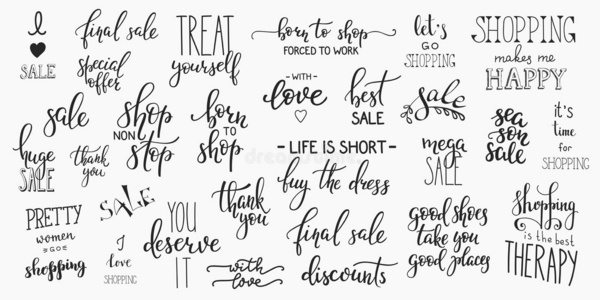 I
SALE
final sale
special
offer
TREAT
yourself
born to shop
FORCED TO WORK
let's
GO
SHOPPING
SHOPPING
makes me
HAPPY
sale
huge
SALE
thank
you
shop
NON
stop
born
TO
shop
- WITH -
love
best
SALE
sale
mega
SALE
sea
son
sale
it's
time
for
SHOPPING
- LIFE IS SHORT -
buy the dress
dreamstime
PRETTY
women
GO
shopping
SALE
I
love
SHOPPING
YOU
deserve
IT
thank
you
with
love
final sale
discounts
good shoes
take you
good places
Shopping
is the best
THERAPY